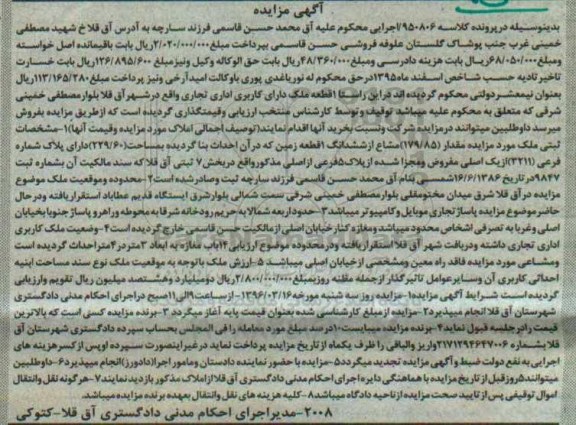 آگهی مزایده
بدینوسیله در پرونده کلاسه ۹۵۰۸۰۶/اجرایی محکوم علیه آق محمد حسن قاسمی فرزند سارچه به آدرس آق قلا خ شهید مصطفی
خمینی غرب جنب پوشاک گلستان علوفه فروشی حسن قاسمی بپرداخت مبلغ ۲/۰۲۰/۰۰۰/۰۰۰ ریال بابت باقیمانده اصل خواسته
ومبلغ ۶۸/۰۵۰/۰۰۰ ریال بابت هزینه دادرسی ومبلغ ۴۸/۳۶۰/۰۰۰ ریال بابت حق الوکاله وکیل ونیز مبلغ ۱۲۶/۸۹۵/۶۰۰ ریال بابت خسارت
تاخیر تادیه حسب شاخص اسفند ماه ۱۳۹۵ درحق محکوم له نور یاغدی پوری باوکالت امید آرخی ونیز پرداخت مبلغ ۱۱۳/۱۶۵/۲۸۰ ریال
بعنوان نیمعشر دولتی محکوم گردیده اند در این راستا ۱ قطعه ملک دارای کاربری اداری تجاری واقع در شهر آق قلا بلوار مصطفی خمینی
شرقی که متعلق به محکوم علیه میباشد توقیف و توسط کارشناس منتخب ارزیابی وقیمتگذاری گردیده است که از طریق مزایده بفروش
میرسد داوطلبین میتوانند در مزایده شرکت ونسبت بخرید آنها اقدام نمایند(توصیف اجمالی املاک مورد مزایده وقیمت آنها) ۱-مشخصات
ثبتی ملک مورد مزایده مقدار (۱۷۹/۸۵) مشاع از ششدانگ ۱ قطعه زمین که در آن احداث بنا گردیده بمساحت (۲۲۹/۶۰) دارای پلاک شماره
فرعی (۳۲۱۱) از یک اصلی مفروض ومجزا شده از پلاک ۵ فرعی از اصلی مذکور واقع در بخش ۷ ثبتی آق قلا که سند مالکیت آن بشماره ثبت
۹۸۴۷ در تاریخ ۱۳۸۶/۶/۱۶ شمسی بنام آق محمد حسن قاسمی فرزند سارچه ثبت وصادر شده است ۲-محدوده وموقعیت ملک موضوع
مزایده در آق قلا شرق میدان مختومقلی بلوار مصطفی خمینی شرقی سمت شمالی بلوار شرق ایستگاه قدیم عطاباد استقرار یافته ودر حال
حاضر موضوع مزایده پاساژ تجاری موبایل و کامپیوتر میباشد ۳-حدود اربعه شمالا به حریم رودخانه شرقا به محوطه وراهرو پاساژ جنوبا بخیابان
اصلی وغربا به تصرفی اشخاص محدود میباشد ومغازه کنار خیابان اصلی از مالکیت حسن قاسمی خارج گردیده است ۴-وضعیت ملک کاربری
اداری تجاری داشته ودربافت شهر آق قلا استقرار یافته ودر محدوده موضوع ارزیابی ۱۴ باب مغازه به ابعاد ۳متر در ۴متر احداث گردیده است
ومشاعی مورد مزایده فاقد راه معین ومشخصی از خیابان اصلی میباشد ۵-ارزش ملک باتوجه به موقعیت ملک نوع سند مساحت ابنیه
احداثی کاربری آن وسایر عوامل تاثیر گذار از جمله مظنه روز بمبلغ ۲/۸۰۰/۰۰۰/۰۰۰ ریال دومیلیارد وهشتصد میلیون ریال تقویم وارزیابی
گردیده است شرایط آگهی مزایده ۱-مزایده روز سه شنبه مورخه ۱۳۹۶/۰۳/۱۶ از ساعت ۹ الی ۱۱ صبح در اجرای احکام مدنی دادگستری
شهرستان آق قلا انجام میپذیرد ۲-مزایده از مبلغ کارشناسی شده بعنوان قیمت پایه آغاز میگردد ۳-برنده مزایده کسی است که بالاترین
قیمت را در جلسه قبول نماید ۴-برنده مزایده میبایست ۱۰ درصد مبلغ مورد معامله را فی المجلس بحساب سپرده دادگستری شهرستان آق
قلا بشماره ۲۱۷۱۲۹۴۶۴۷۰۰۶ واریز والباقی را ظرف یکماه از تاریخ مزایده پرداخت نماید در غیر اینصورت سپرده اوپس از کسر هزینه های
اجرایی به نفع دولت ضبط و آگهی مزایده تجدید میگردد ۵-مزایده با حضور نماینده دادستان ومامور اجرا(دادورز)انجام میپذیرد ۶-داوطلبین
میتوانند ۵ روز قبل از تاریخ مزایده با هماهنگی دایره اجرای احکام مدنی دادگستری آق قلا از املاک مذکور بازدید نمایند ۷-هرگونه نقل وانتقال
اموال توقیفی پس از تایید صحت مزایده از ناحیه دادگاه میباشد ۸-کلیه هزینه های نقل وانتقال بعهده برنده مزایده میباشد.
۲۰۰۸-مدیر اجرای احکام مدنی دادگستری آق قلا-کتوکی